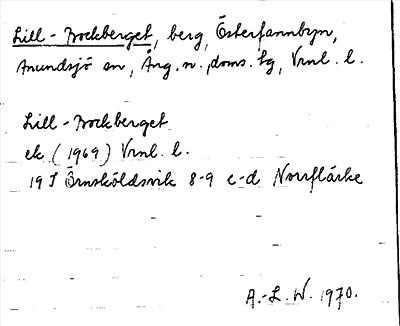 Lill-Bockberget, berg, Österfannbyn,
Anundsjö sn, Ång. n. doms. tg, Vrnl. l.
Lill-Bockberget
ek (1969) Vrnl. l.
19 I Örnsköldsvik 8-9 c-d Norrflärke
A.-L. W. 1970.